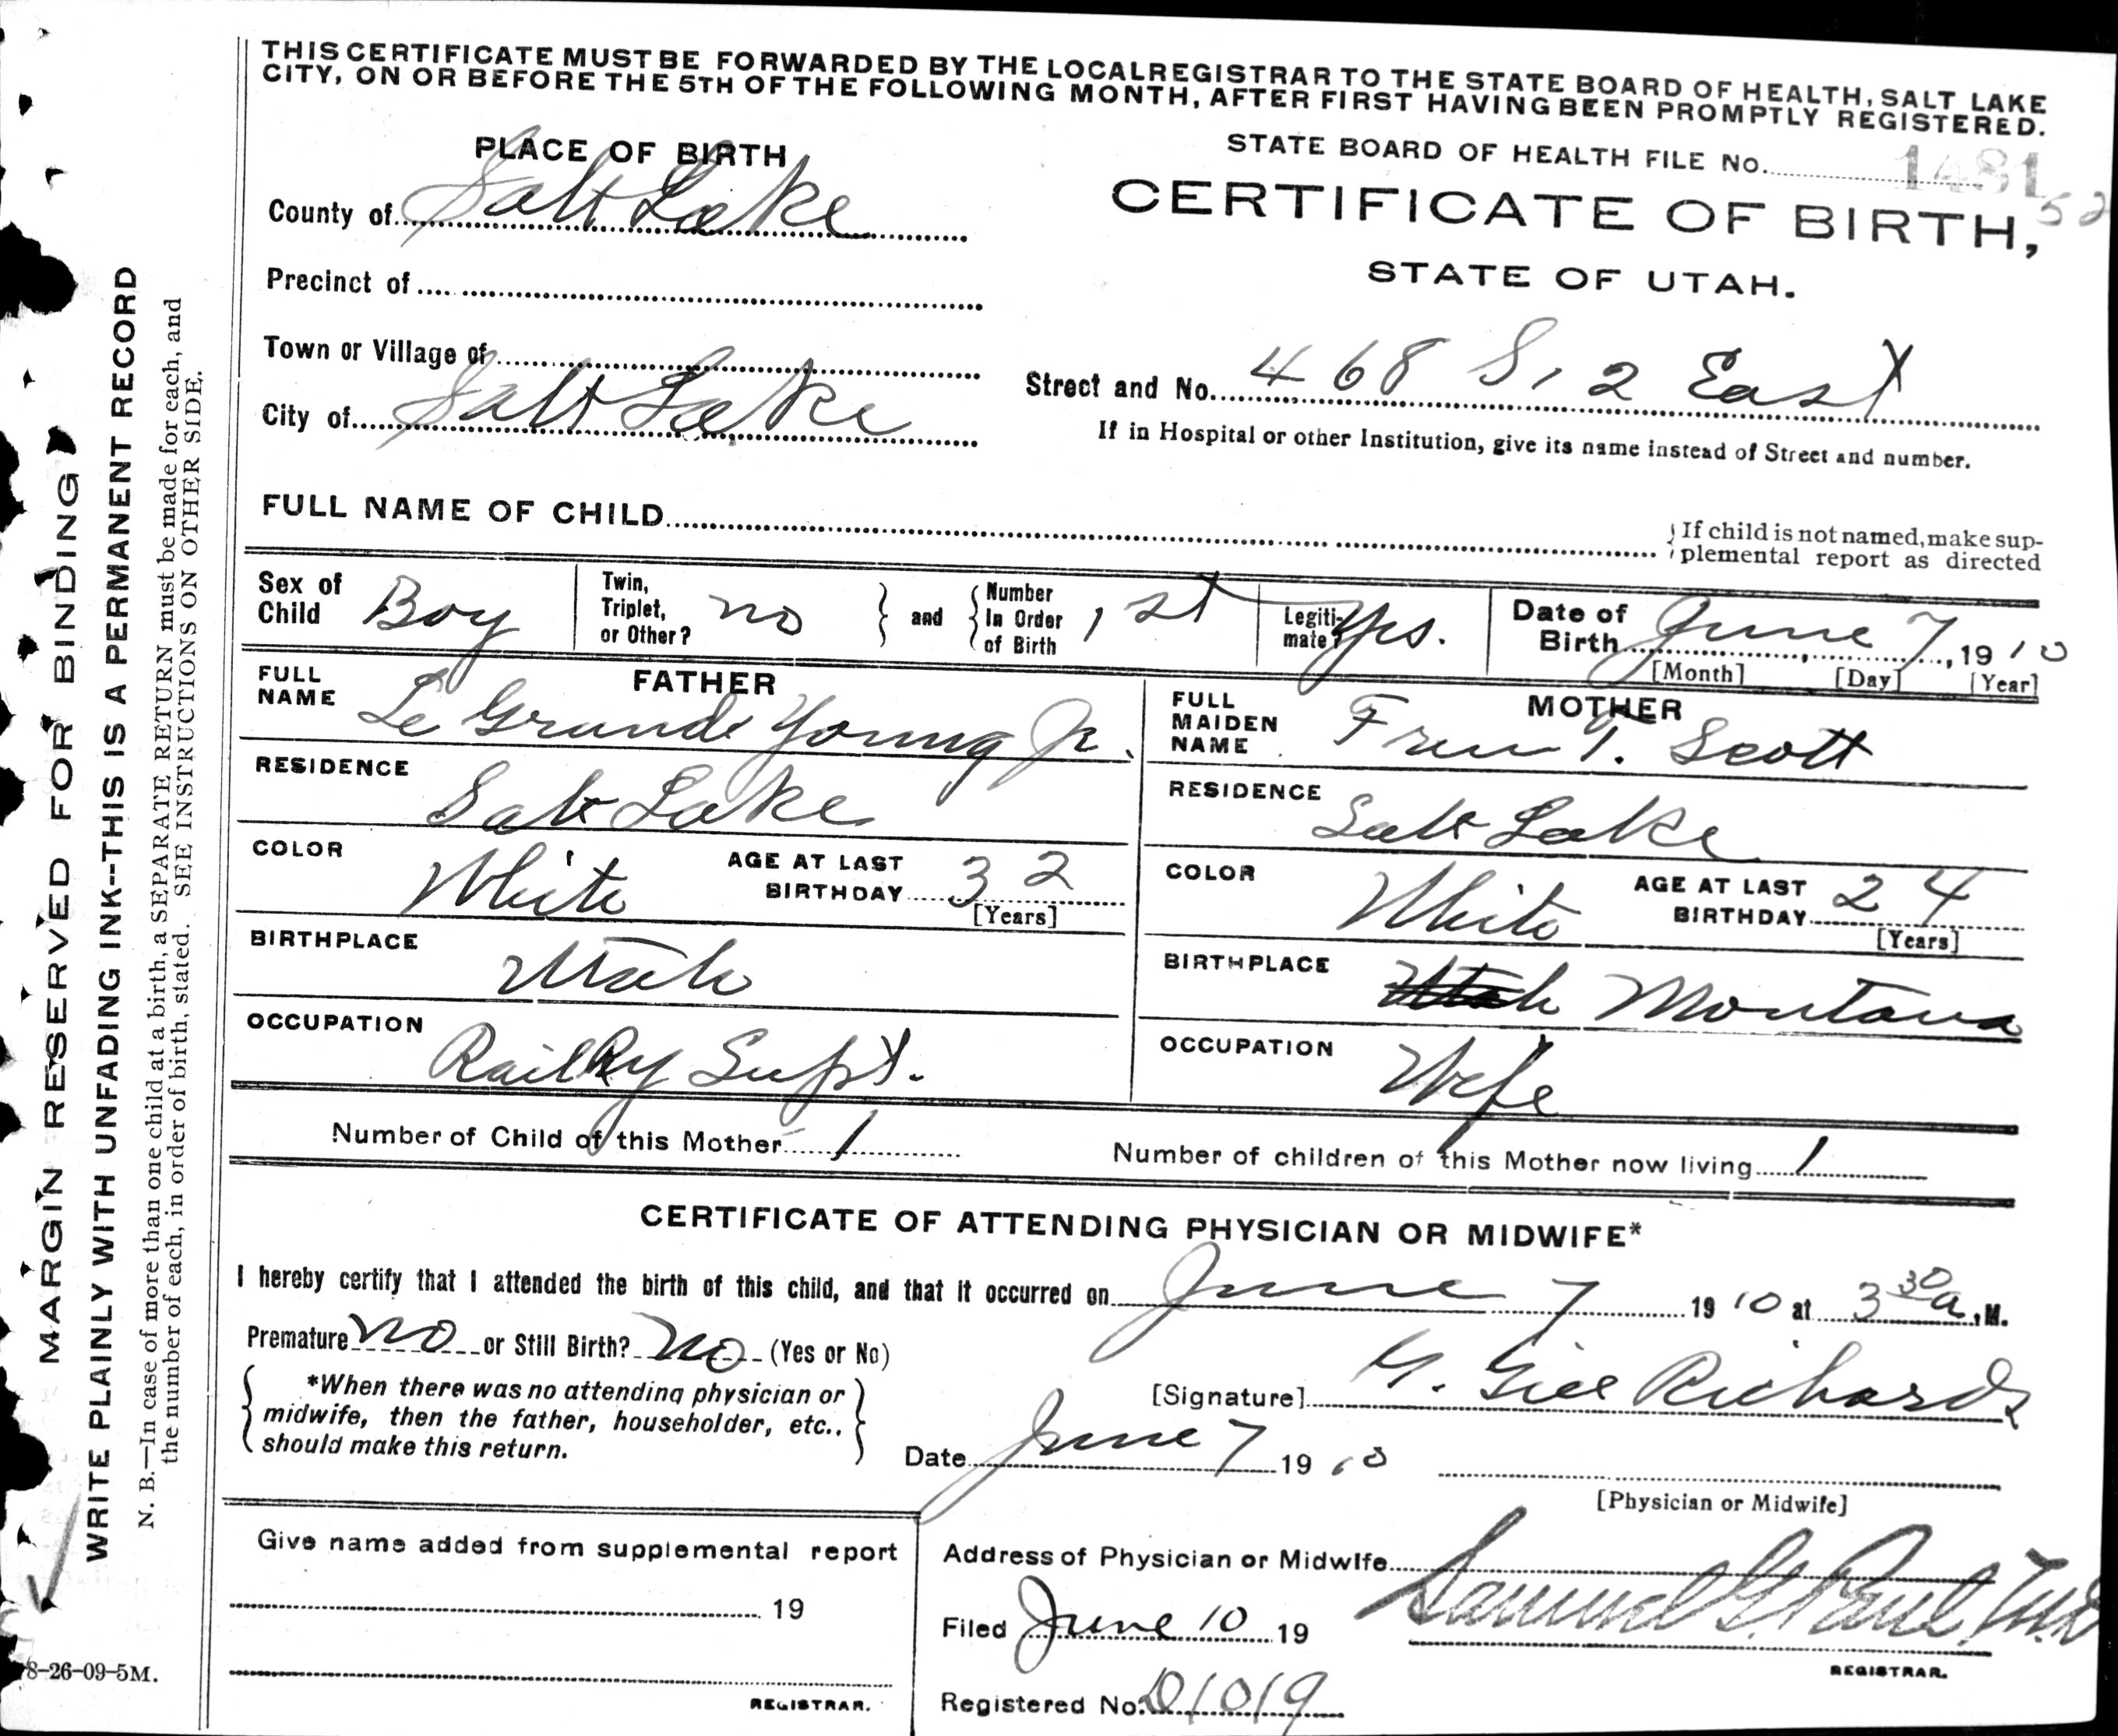 THIS CERTIFICATE MUST BE FORWARDED BY THE LOCAL REGISTRAR TO THE STATE BOARD OF HEALTH, SALT LAKE
CITY, ON OR BEFORE THE 5TH OF THE FOLLOWING MONTH, AFTER FIRST HAVING BEEN PROMPTLY REGISTERED.
PLACE OF BIRTH
STATE BOARD OF HEALTH FILE No. 1481 52
County of Salt Lake
CERTIFICATE OF BIRTH,
STATE OF UTAH.
Precinct of
Town or Village of
Street and No. 468 S. 2 East
City of Salt Lake
If in Hospital or other Institution, give its name instead of Street and number.
FULL NAME OF CHILD
If child is not named, make sup-
plemental report as directed
Sex of Child Boy
Twin, Triplet, or Other? no
and Number In Order of Birth 1st
Legiti-mate? Yes.
Date of Birth June 7, 1910
[Month] [Day] [Year]
FATHER
FULL NAME Le Grande Young Jr.
RESIDENCE Salt Lake
COLOR White
AGE AT LAST BIRTHDAY 32
[Years]
BIRTHPLACE Utah
OCCUPATION RailRy Supt.
MOTHER
FULL MAIDEN NAME T. Scott
RESIDENCE Salt Lake
COLOR White
AGE AT LAST BIRTHDAY 24
[Years]
BIRTHPLACE Utah Montana
OCCUPATION Wife
Number of Child of this Mother 1
Number of children of this Mother now living 1
CERTIFICATE OF ATTENDING PHYSICIAN OR MIDWIFE*
I hereby certify that I attended the birth of this child, and that it occurred on June 7 1910 at 3 30 a.M.
Premature no or Still Birth? no (Yes or No)
*When there was no attending physician or
midwife, then the father, householder, etc.,
should make this return.
[Signature] G. Gill Richards
Date June 7 1910
[Physician or Midwife]
Give name added from supplemental report
19
REGISTRAR.
Address of Physician or Midwife
Samuel G. Paul, M.D
Filed June 10 19
REGISTRAR.
Registered No. D1019
MARGIN RESERVED FOR BINDING
WRITE PLAINLY WITH UNFADING INK--THIS IS A PERMANENT RECORD
N. B.—In case of more than one child at a birth, a SEPARATE RETURN must be made for each, and
the number of each, in order of birth, stated. SEE INSTRUCTIONS ON OTHER SIDE.
8-26-09-5M.